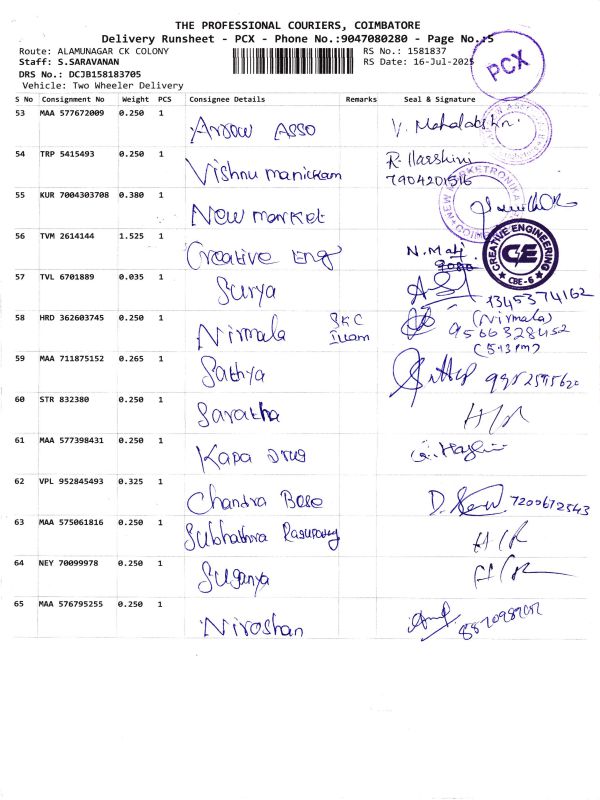 THE PROFESSIONAL COURIERS, COIMBATORE
Delivery Runsheet - PCX - Phone No.:9047080280 - Page No.:5
Route: ALAMUNAGAR CK COLONY RS No.: 1581837
Staff: S.SARAVANAN RS Date: 16-Jul-2025
PCX
DRS No.: DCJB158183705
Vehicle: Two Wheeler Delivery
S No Consignment No Weight PCS Consignee Details Remarks Seal & Signature
53 MAA 577672009 0.250 1 Arrow Asso
54 TRP 5415493 0.250 1 Vishnu manickam R. Harshini
7904201516
55 KUR 7004303708 0.380 1 New market
56 TVM 2614144 1.525 1 Creative Eng
CREATIVE ENGINEERING
CE
CBE-6
57 TVL 6701889 0.035 1 Surya 1345374162
58 HRD 362603745 0.250 1 Nirmala (Nirmala)
9566328452
59 MAA 711875152 0.265 1 Sathya
60 STR 832380 0.250 1 Saratha H/R
61 MAA 577398431 0.250 1 Kapa Drug
62 VPL 952845493 0.325 1 Chandra Bose 7200672543
63 MAA 575061816 0.250 1 H/R
64 NEY 70099978 0.250 1 Suganya H/R
65 MAA 576795255 0.250 1 Niroshan